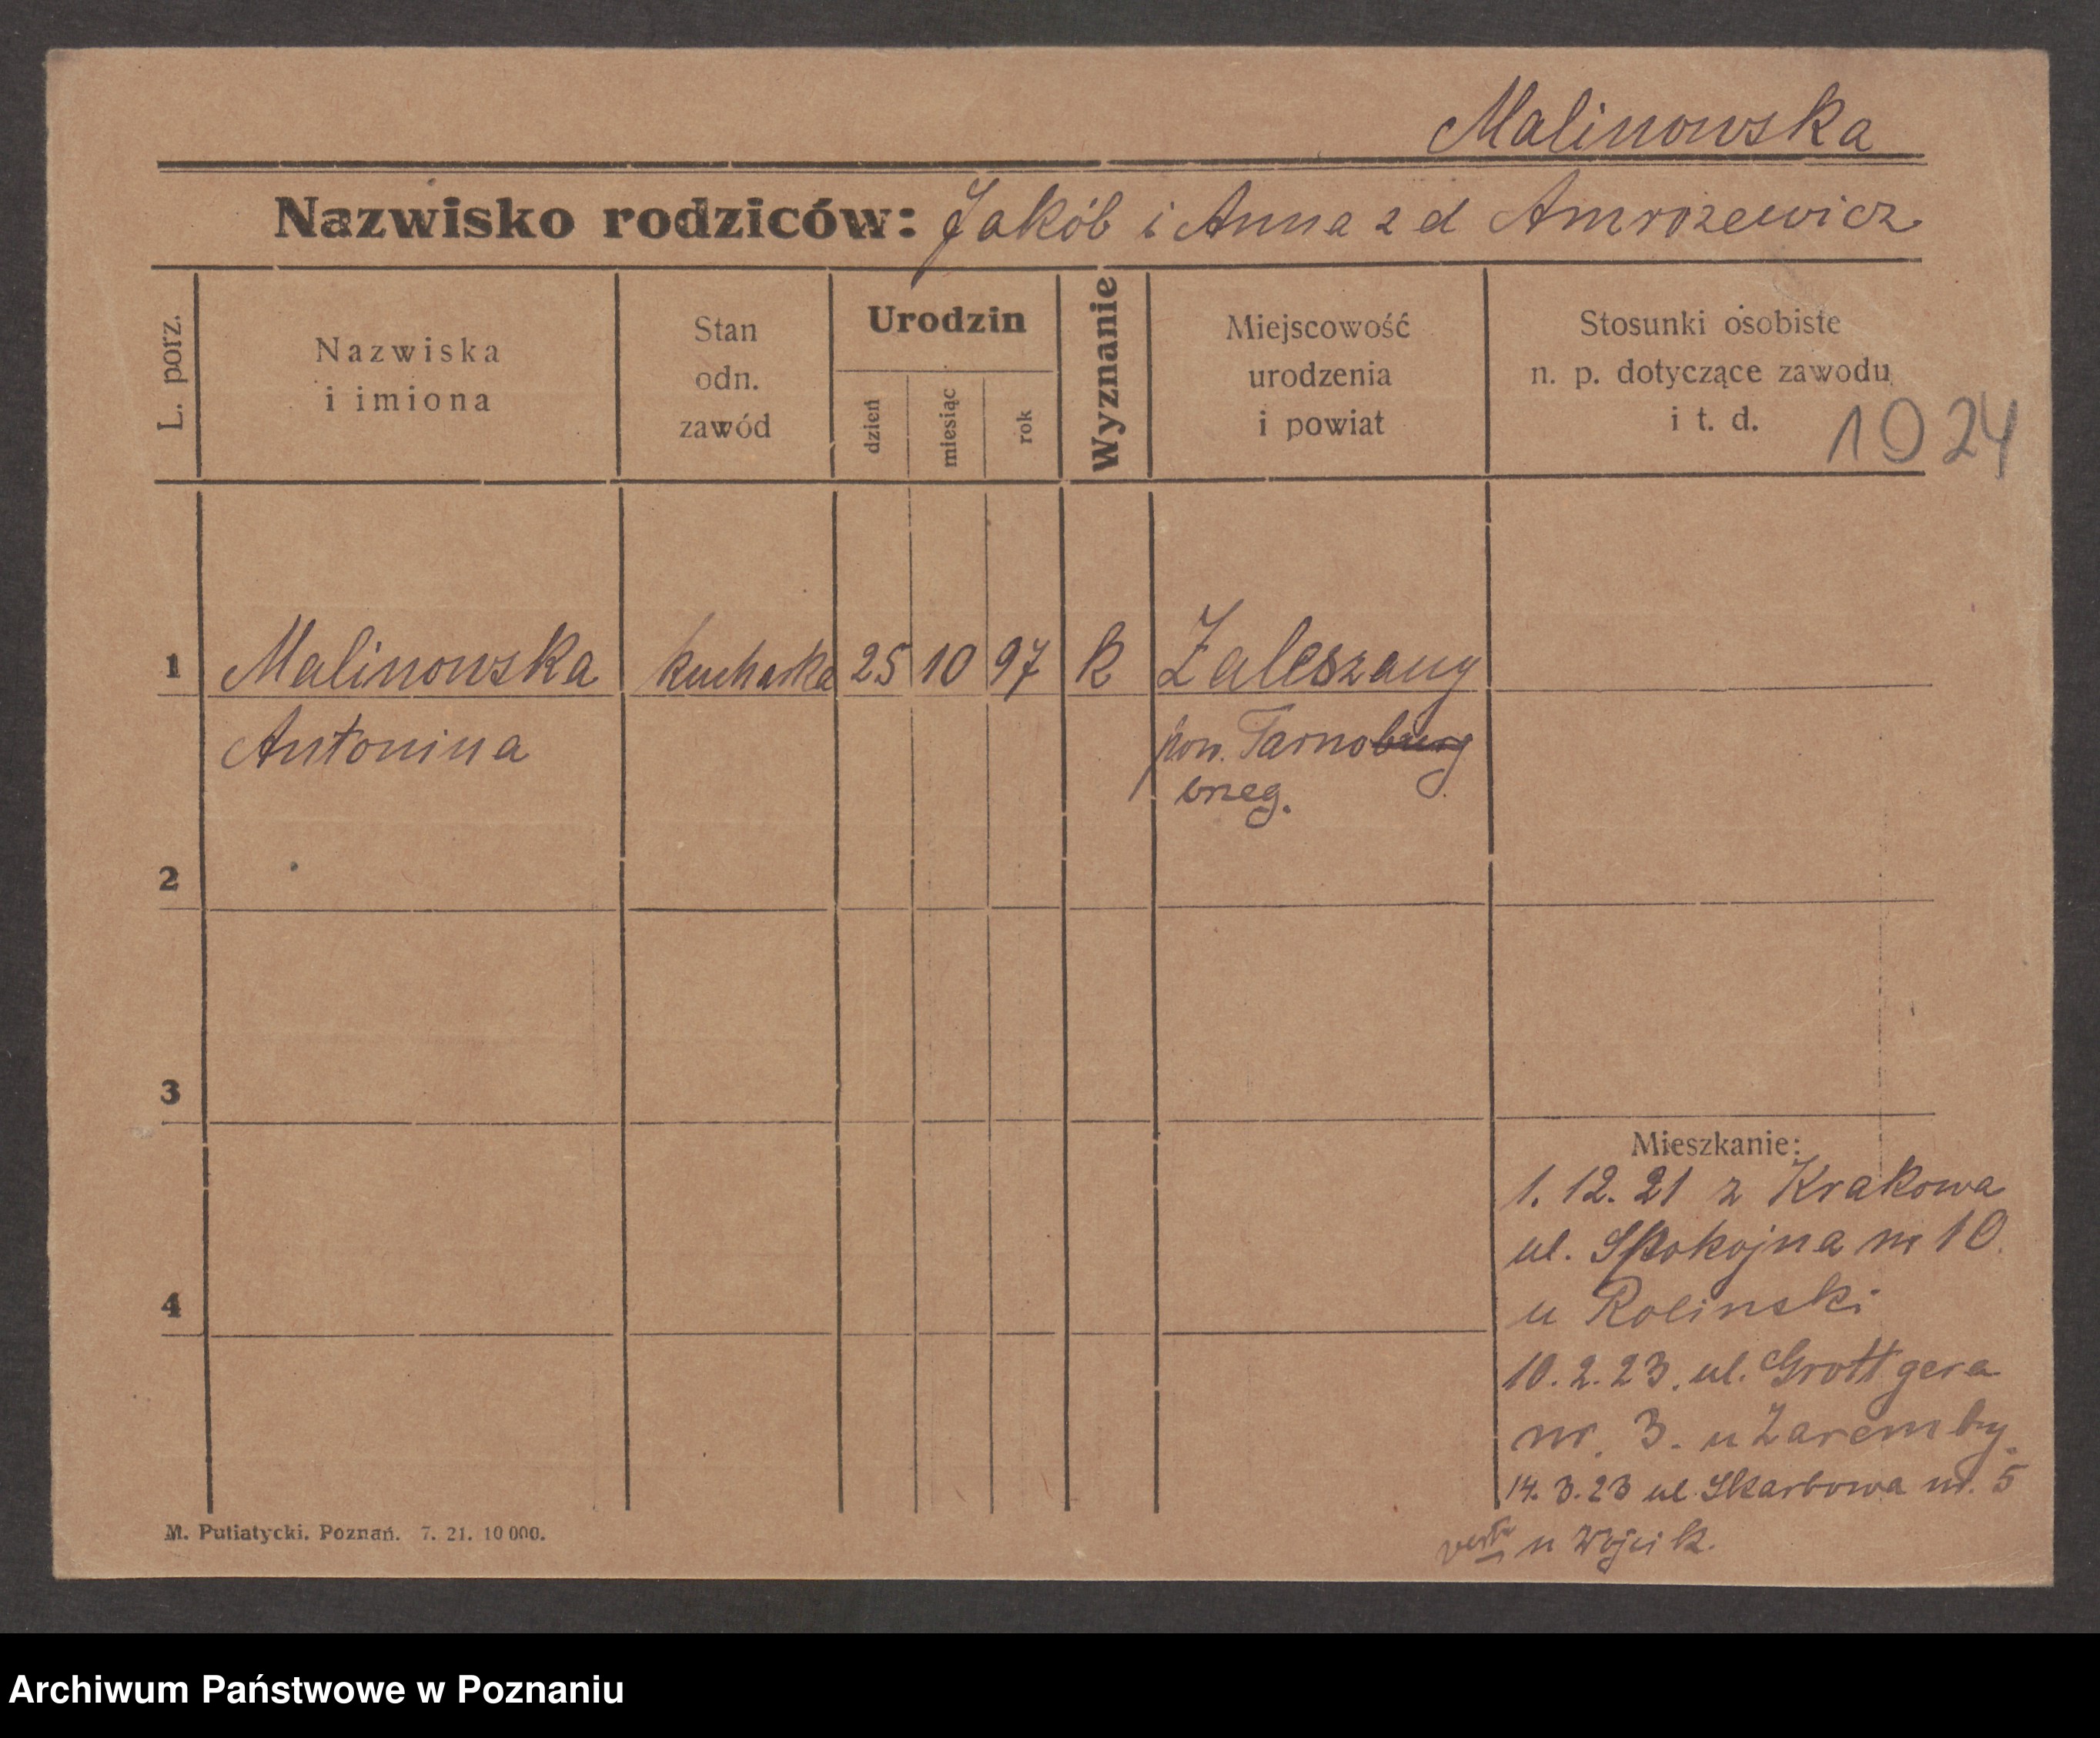 Malinowska
Nazwisko rodziców: Jakób i Anna z d Amrozewicz
L. porz.
Nazwiska
i imiona
Stan
odn.
zawód
Urodzin
dzień
miesiąc
rok
Wyznanie
Miejscowość
urodzenia
i powiat
Stosunki osobiste
n. p. dotyczące zawodu
i t. d.
1924
1 Malinowska kucharka 25 10 97 k Zaleszany
Antonina pow. Tarnoburg
brzeg.
2
3
Mieszkanie:
1. 12. 21 z Krakowa
ul. Spokojna nr 10
u Rolinski
4
10. 2. 23. ul. Grottgera
nr. 3. u Zaremby.
14. 3. 23 ul. Skarbowa nr. 5
u Wójcik.
M. Putiatycki. Poznań. 7. 21. 10 000.
Archiwum Państwowe w Poznaniu